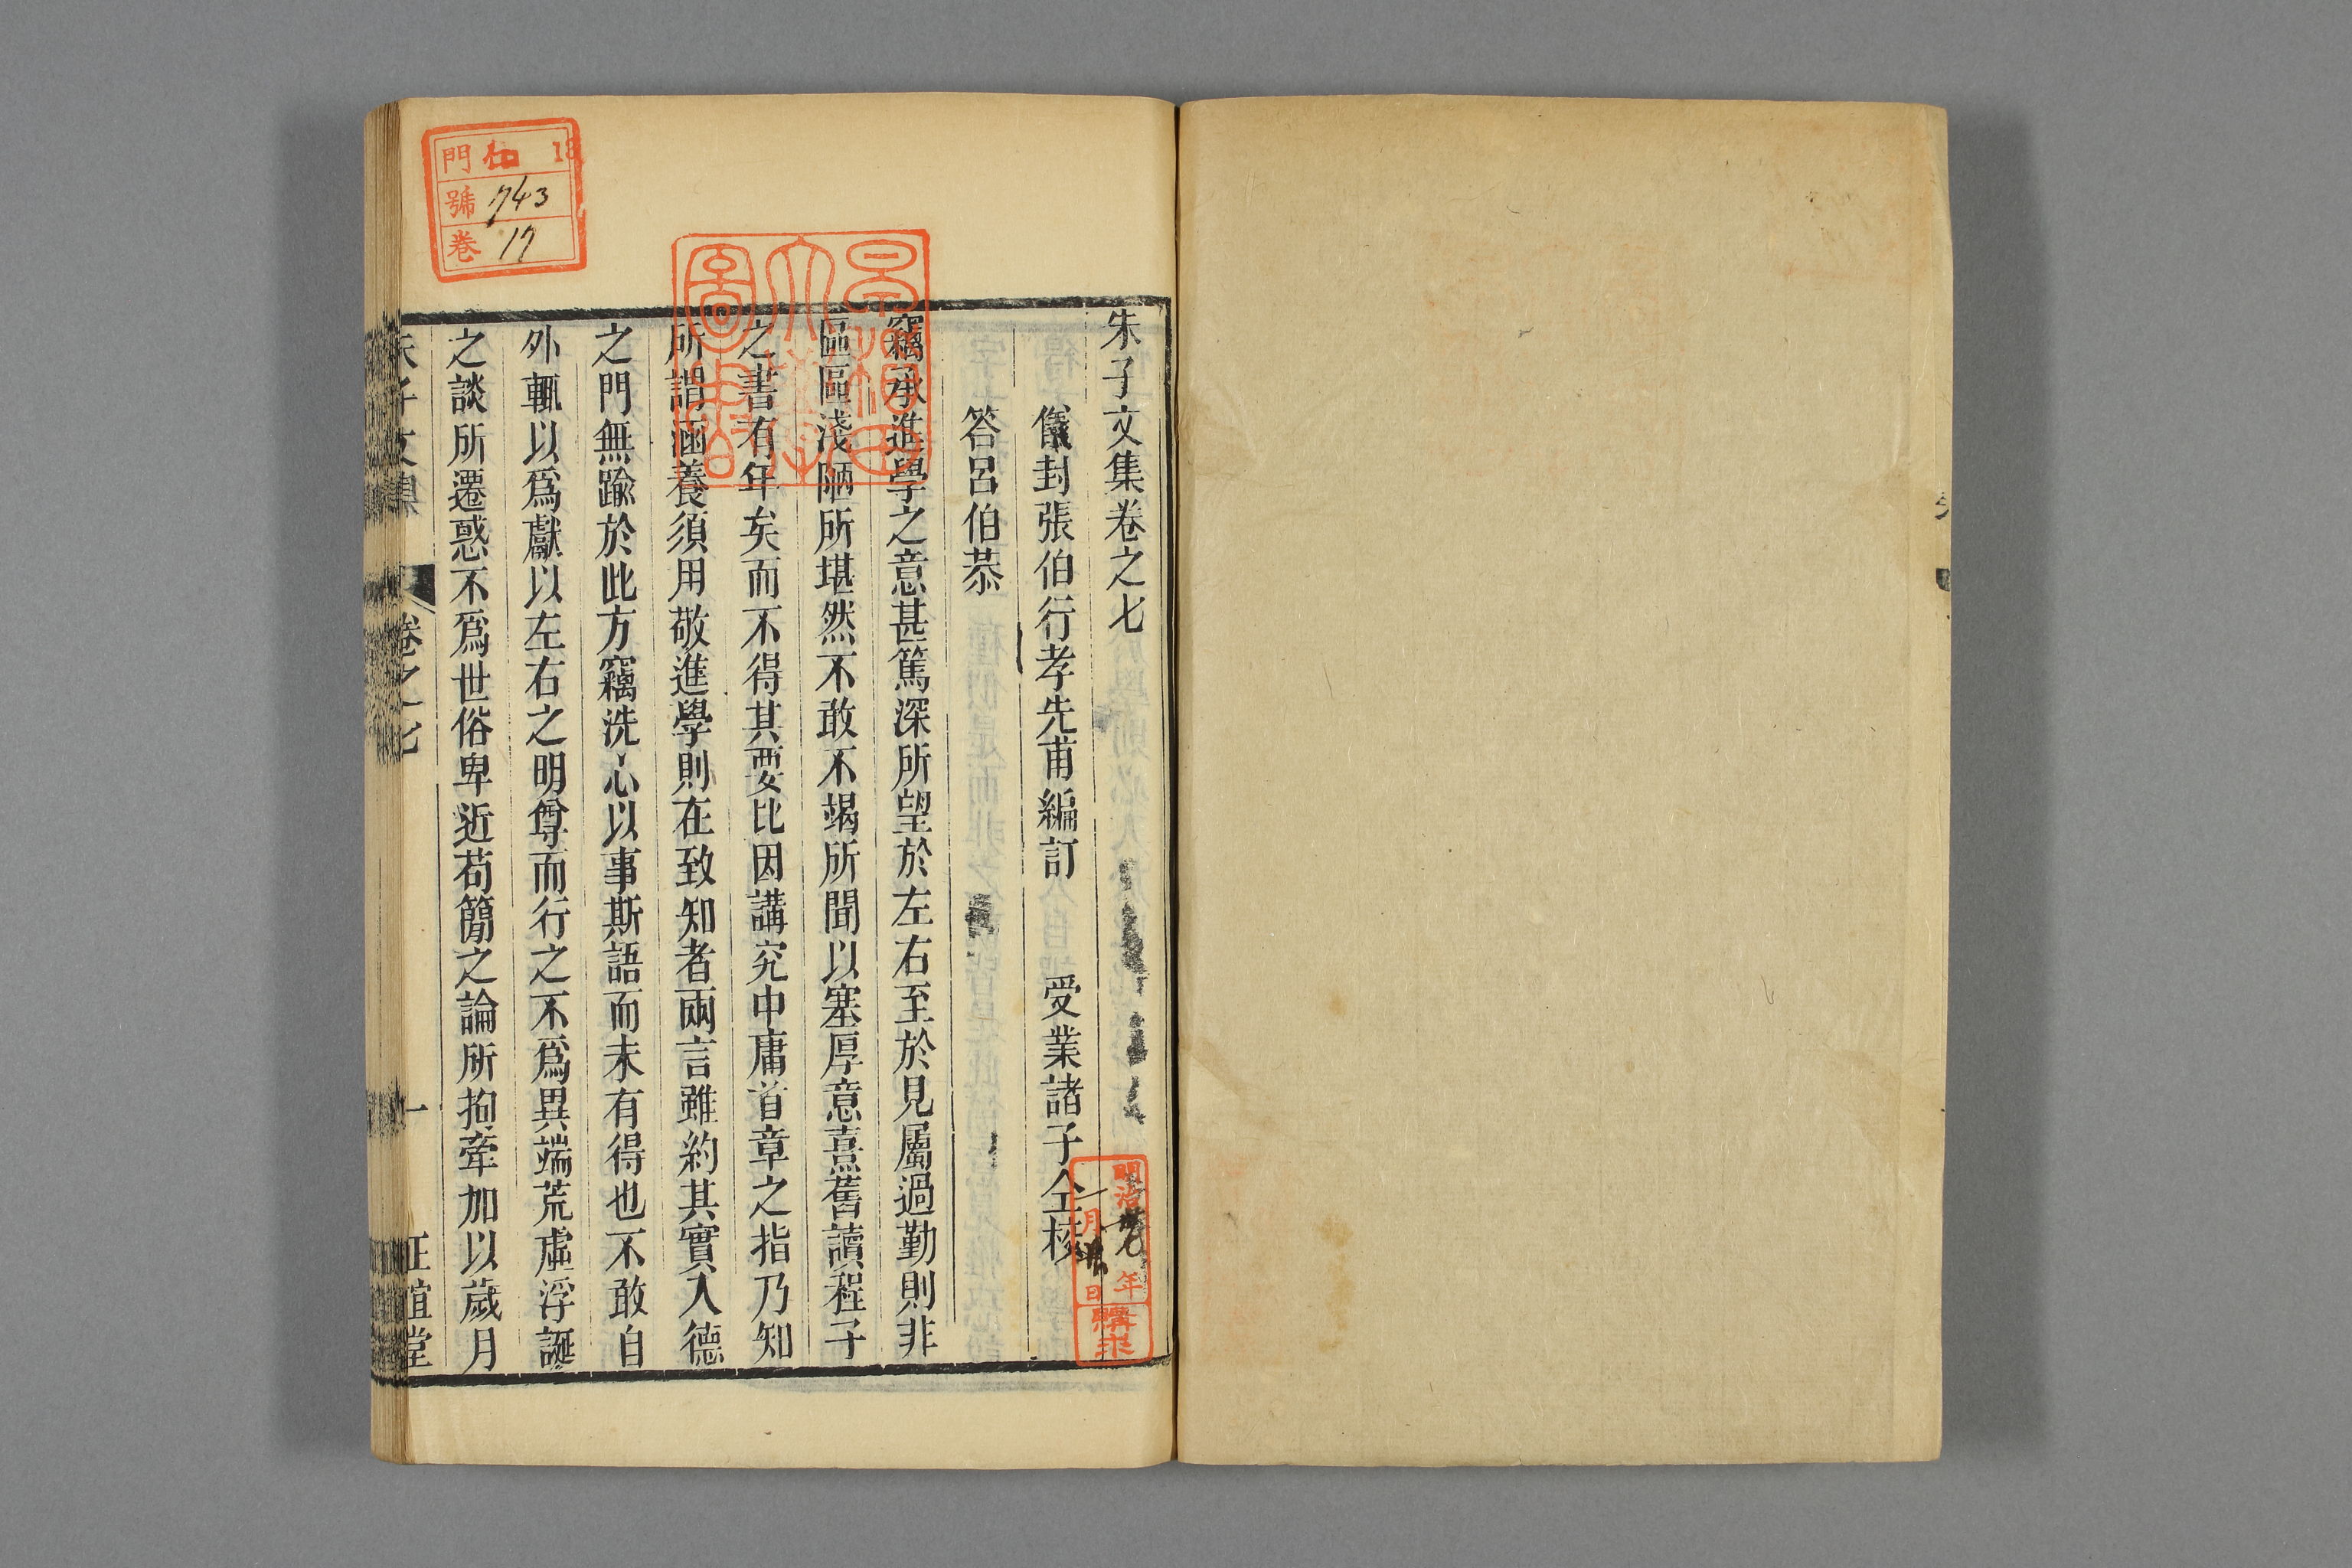 朱子文集卷之七
儀封張伯行孝先甫編訂 受業諸子仝校
答呂伯恭
竊承進學之意甚篤深所望於左右至於見屬過勤則非
區區淺陋所堪然不敢不竭所聞以塞厚意熹舊讀程子
之書有年矣而不得其要比因講究中庸首章之指乃知
所謂涵養須用敬進學則在致知者兩言雖約其實入德
之門無踰於此方竊洗心以事斯語而未有得也不敢自
外輒以爲獻以左右之明尊而行之不爲異端荒虛浮誕
之談所遷惑不爲世俗卑近苟簡之論所拘牽加以歲月
朱子文集 卷之七 一 正誼堂
門 和 18
號 743
卷 17
早稻田大學圖書
明治 年
月 日
購求